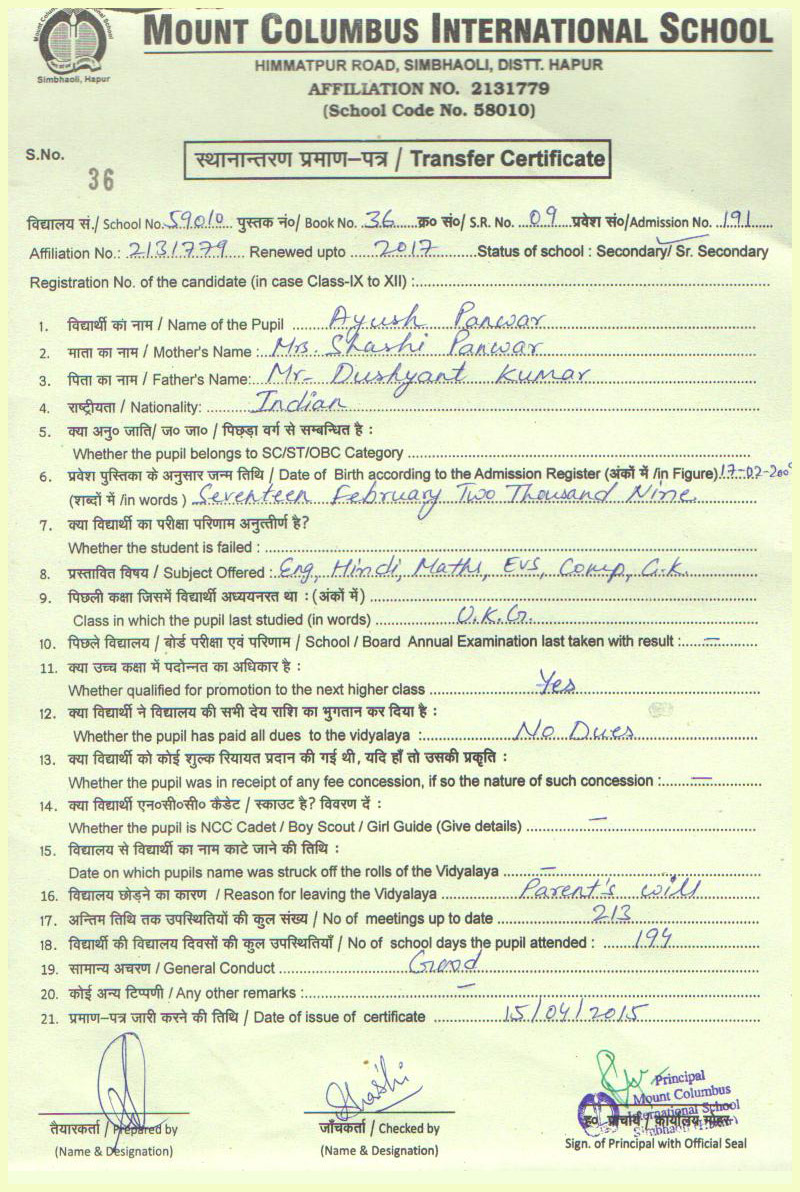 Simbhaoli, Hapur
MOUNT COLUMBUS INTERNATIONAL SCHOOL
HIMMATPUR ROAD, SIMBHAOLI, DISTT. HAPUR
AFFILIATION NO. 2131779
(School Code No. 58010)
S.No. 36
स्थानान्तरण प्रमाण–पत्र / Transfer Certificate
विद्यालय सं./ School No. 59010 पुस्तक नं०/ Book No. 36 क्र० सं०/ S.R. No. 09 प्रवेश सं०/Admission No. 191
Affiliation No.: 2131779 Renewed upto 2017 Status of school : Secondary/ Sr. Secondary
Registration No. of the candidate (in case Class-IX to XII) :
1. विद्यार्थी का नाम / Name of the Pupil Ayush Panwar
2. माता का नाम / Mother's Name : Mrs. Shashi Panwar
3. पिता का नाम / Father's Name: Mr- Dushyant Kumar
4. राष्ट्रीयता / Nationality: Indian
5. क्या अनु० जाति/ ज० जा० / पिछड़ा वर्ग से सम्बन्धित है :
Whether the pupil belongs to SC/ST/OBC Category
6. प्रवेश पुस्तिका के अनुसार जन्म तिथि / Date of Birth according to the Admission Register (अंकों में /in Figure) 17-02-2009
(शब्दों में /in words ) Seventeen February Two Thousand Nine.
7. क्या विद्यार्थी का परीक्षा परिणाम अनुत्तीर्ण है?
Whether the student is failed :
8. प्रस्तावित विषय / Subject Offered : Eng, Hindi, Maths, EVS, Comp, G.K.
9. पिछली कक्षा जिसमें विद्यार्थी अध्ययनरत था : (अंकों में)
Class in which the pupil last studied (in words) U.K.G.
10. पिछले विद्यालय / बोर्ड परीक्षा एवं परिणाम / School / Board Annual Examination last taken with result : —
11. क्या उच्च कक्षा में पदोन्नत का अधिकार है :
Whether qualified for promotion to the next higher class Yes
12. क्या विद्यार्थी ने विद्यालय की सभी देय राशि का भुगतान कर दिया है :
Whether the pupil has paid all dues to the vidyalaya : No Dues
13. क्या विद्यार्थी को कोई शुल्क रियायत प्रदान की गई थी, यदि हाँ तो उसकी प्रकृति :
Whether the pupil was in receipt of any fee concession, if so the nature of such concession : —
14. क्या विद्यार्थी एन०सी०सी० कैडेट / स्काउट है? विवरण दें :
Whether the pupil is NCC Cadet / Boy Scout / Girl Guide (Give details) —
15. विद्यालय से विद्यार्थी का नाम काटे जाने की तिथि :
Date on which pupils name was struck off the rolls of the Vidyalaya —
16. विद्यालय छोड़ने का कारण / Reason for leaving the Vidyalaya Parent's will
17. अन्तिम तिथि तक उपस्थितियों की कुल संख्य / No of meetings up to date 213
18. विद्यार्थी की विद्यालय दिवसों की कुल उपस्थितियाँ / No of school days the pupil attended : 194
19. सामान्य अचरण / General Conduct Good
20. कोई अन्य टिप्पणी / Any other remarks : —
21. प्रमाण-पत्र जारी करने की तिथि / Date of issue of certificate 15/04/2015
Shashi
Principal
Mount Columbus
International School
तैयारकर्ता / Prepared by जाँचकर्ता / Checked by ह० प्राचार्य / कार्यालय मोहर
(Name & Designation) (Name & Designation) Sign. of Principal with Official Seal